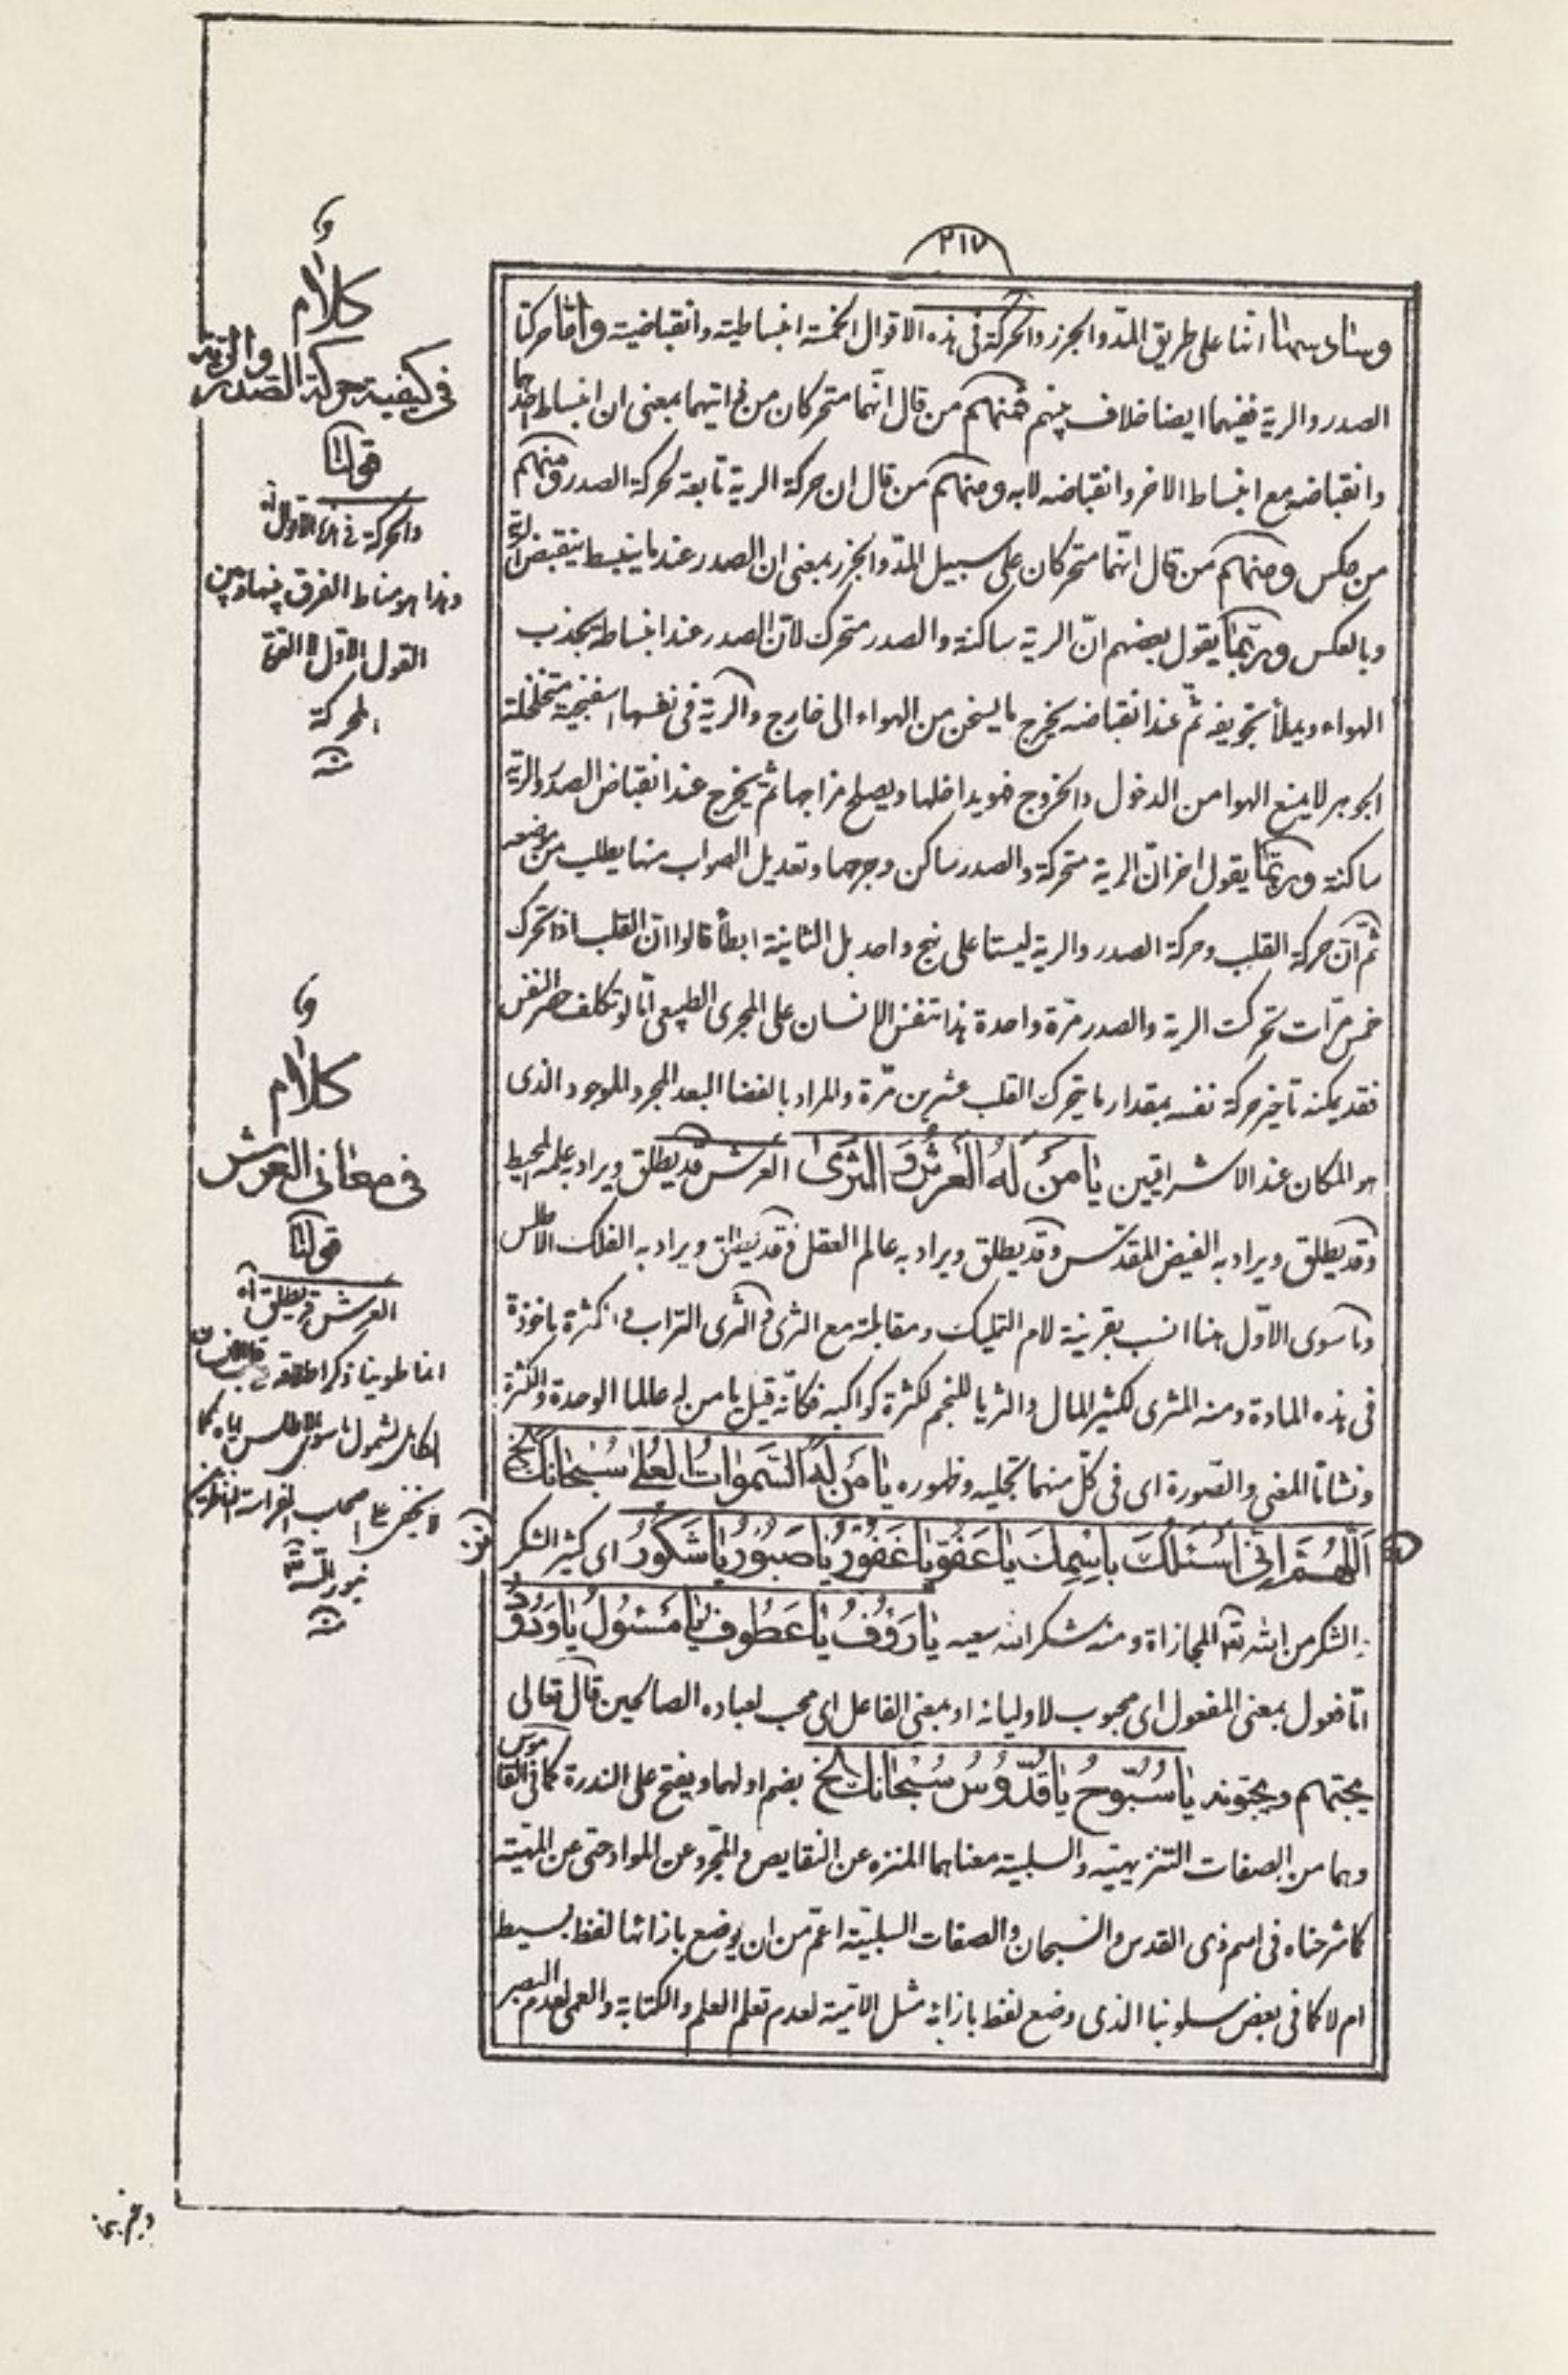 ٢١٧
وسادسها انها على طريق المدّ والجزر والحركة فى هذه الاقوال الخمسة انبساطية وانقباضية وامّا حركتا
الصدر والرية ففيهما ايضا خلاف بينهم فمنهم من قال انّهما متحركان من ذاتيهما بمعنى ان انبساط احدهما
وانقباضه مع انبساط الاخر وانقباضه لا به ومنهم من قال ان حركة الرية تابعة لحركة الصدر ومنهم
من عكس ومنهم من قال انّهما متحركان على سبيل المدّ والجزر بمعنى ان الصدر عندما ينبسط ينقبض الرية
وبالعكس وربّما يقول بعضهم انّ الرية ساكنة والصدر متحرك لانّ الصدر عند انبساطه يجذب
الهواء ويملأ تجويفه ثمّ عند انقباضه يخرج ما يسخن من الهواء الى خارج والرية فى نفسها اسفنجية متخلخلة
الجوهر لا يمنع الهوا من الدخول والخروج فهو يداخلها ويصلح مزاجها ثمّ يخرج عند انقباض الصدر والرية
ساكنة وربّما يقول اخر انّ الرية متحركة والصدر ساكن وجرحها وتعديل الصواب منها يطلب من موضعه
ثمّ انّ حركة القلب وحركة الصدر والرية ليستا على نهج واحد بل الثانية ابطأ قالوا انّ القلب اذا تحرك
خمس مرّات تحركت الرية والصدر مرّة واحدة هذا تنفس الانسان على المجرى الطبيعى امّا لو تكلف حصر النفس
فقد يمكنه تاخير حركة نفسه بمقدار ما يتحرك القلب عشرين مرّة والمراد بالفضا البعد المجرد الموجود الذى
هو المكان عند الاشراقيين يا مَن لَهُ العَرشُ وَ الثَّرى العرش قد يطلق ويراد به علمه المحيط
وقد يطلق ويراد به الفيض المقدّس وقد يطلق ويراد به عالم العقل وقد يطلق ويراد به الفلك الاطلس
وما سوى الاوّل هنا انسب بقرينة لام التمليك ومقابلته مع الثرى والثرى التراب والكثرة ماخوذة
فى هذه المادة ومنه المثرى لكثير المال والثريا للنجم لكثرة كواكبه فكانّه قيل يا من له عالما الوحدة والكثرة
ونشاتا المعنى والصّورة اى فى كلّ منهما تجليه وظهوره يا مَن لَهُ السَّمواتُ العُلى سُبْحانَكَ الخ
اَللّهُمَّ اِنّى اَسْئَلُكَ بِاسْمِكَ يا عَفُوُّ يا غَفُورُ يا صَبُورُ يا شَكُورُ اى كثير الشكر
والشكر من الله تع المجازاة ومنه شكر الله سعيه يا رَؤُفُ يا عَطُوفُ يا مَسْئُولُ يا وَدُودُ
امّا فعول بمعنى المفعول اى محبوب لاوليائه او بمعنى الفاعل اى محب لعباده الصالحين قال تعالى
يحبّهم ويحبّونه يا سُبّوحُ يا قُدّوسُ سُبْحانَكَ الخ بضم اولهما ويفتح على الندرة كما فى القاموس
وهما من الصفات التنزيهيّة والسلبية معناهما المنزه عن النقايص والمتجرد عن المواد حتى عن المهيّة
كما شرحناه فى اسم ذى القدس والسبحان والصفات السلبيّة اعمّ من ان يوضع بازائها لفظ بسيط
ام لا كما فى بعض سلوبنا الذى وضع لفظ بازائه مثل الاميّة لعدم تعلم العلم والكتابة والعمى لعدم البصر
كلام
فى كيفية حركة الصدر والرية
قولنا
والحركة فى هذه الاقوال اه
وهذا هو مناط الفرق بينها وبين
القول الاول
الحركة
منه
كلام
فى معانى العرش
قولنا
العرش قد يطلق اه
انما طوينا ذكر اطلاقه
لشمول ما سوى الاطلس اياه كما
لا يخفى على اصحاب الفراسة
بنور الله
منه